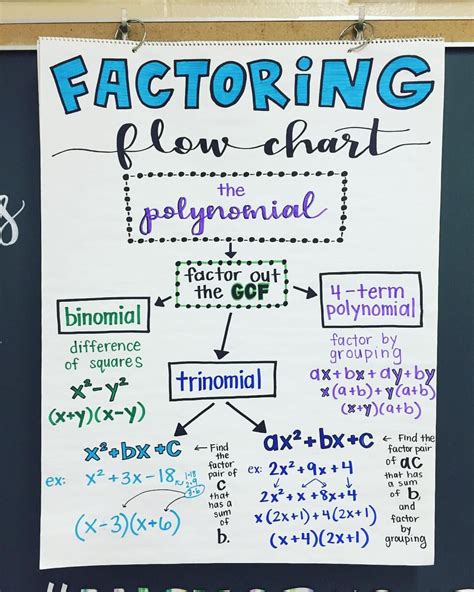 FACTORING
flow chart
the
polynomial
factor out
the GCF
binomial
difference
of squares
x²-y²
(x+y)(x-y)
4-term
polynomial
factor by
grouping
ax+bx+ay+by
x(a+b)+y(a+b)
(x+y)(a+b)
trinomial
x²+bx+c
← Find
the
factor
pair of
c
that
has a
sum
of
b.
ex: x²+3x-18
(x-3)(x+6)
ax²+bx+c
← Find the
factor pair
of ac
that has
a sum
of b,
and
factor
by
grouping
ex: 2x²+9x+4
2x²+x+8x+4
x(2x+1)+4(2x+1)
(x+4)(2x+1)